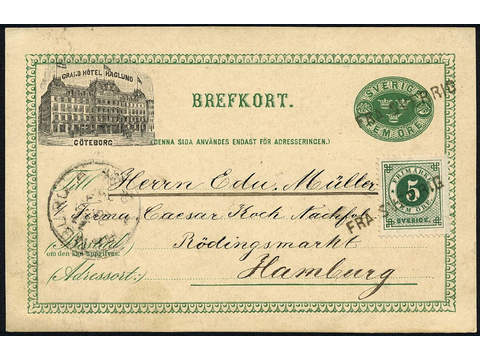 GRAND HÔTEL HAGLUND
GÖTEBORG
BREFKORT.
SVERIGE
FEM ÖRE
(DENNA SIDA ANVÄNDES ENDAST FÖR ADRESSERINGEN.)
Till Herrn Edu. Müller
Firma Caesar Koch Nachf
Bostad
Rödingsmarkt
(om den kan uppgifvas)
Adressort:) Hamburg
FRIMÄRKE
5
FEM ÖRE
SVERIGE.
FRA SVERIG